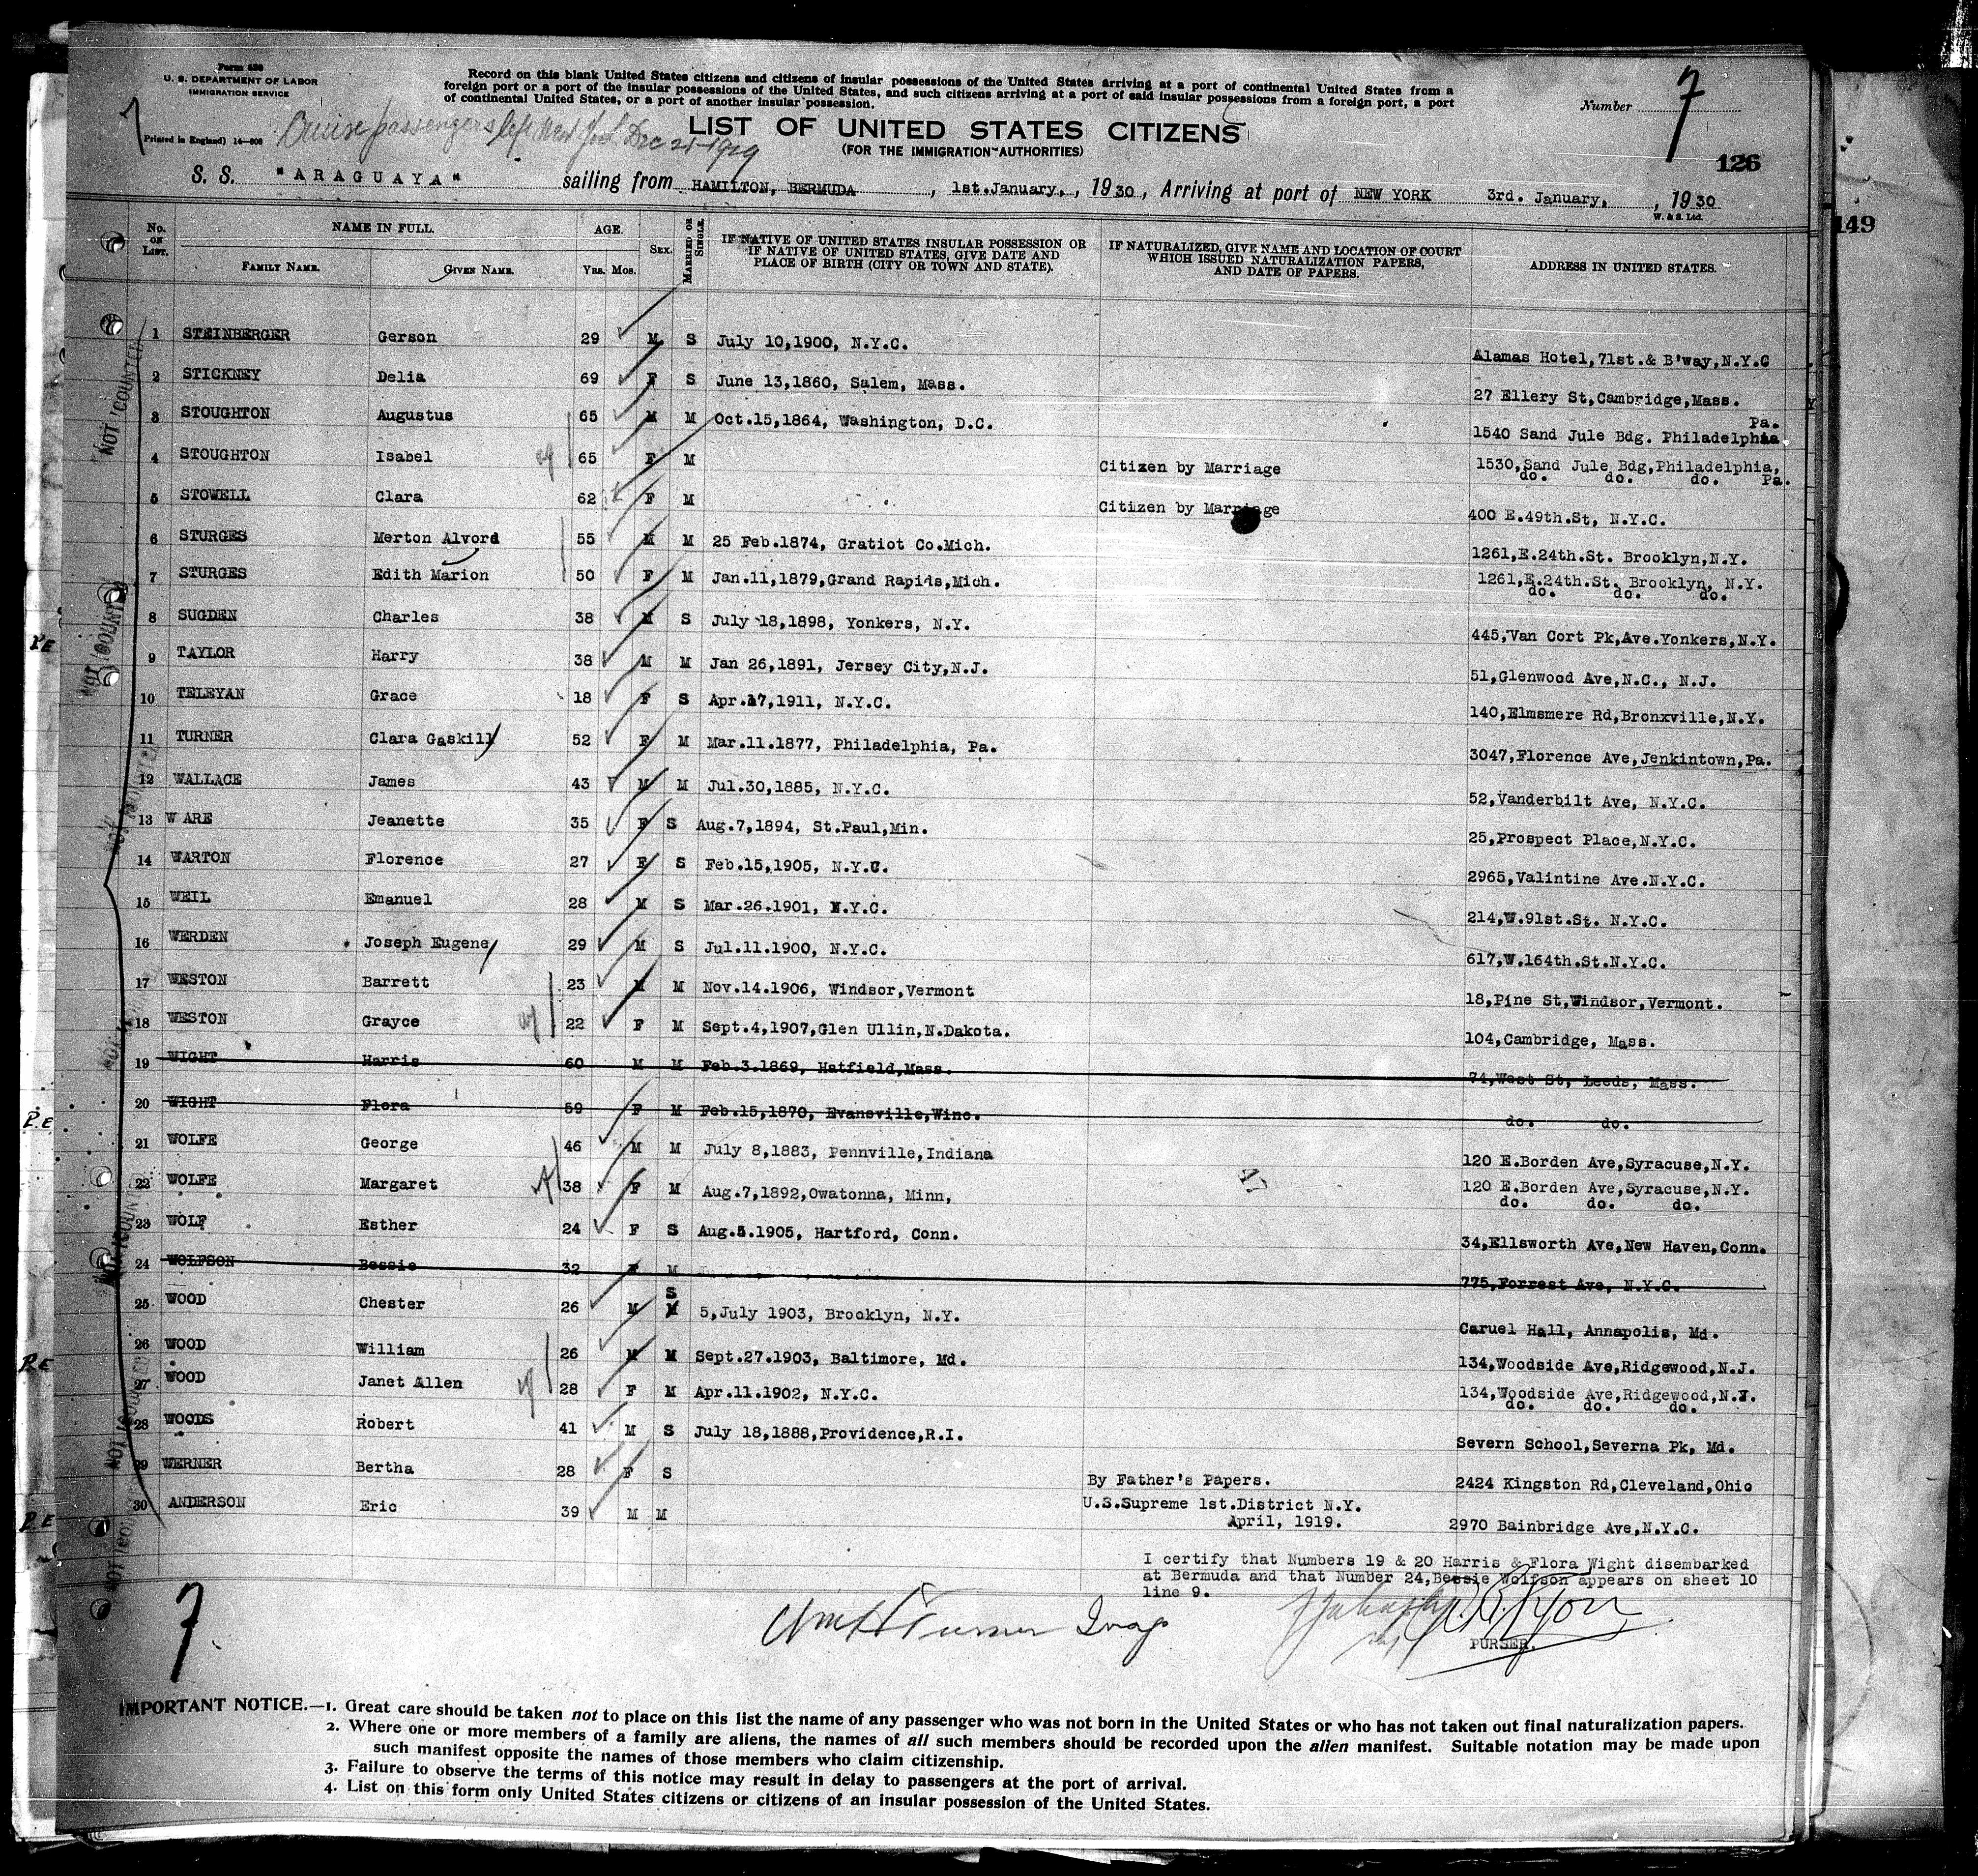 Form 630
U. S. DEPARTMENT OF LABOR
IMMIGRATION SERVICE
Printed in England) 14—808
Record on this blank United States citizens and citizens of insular possessions of the United States arriving at a port of continental United States from a
foreign port or a port of the insular possessions of the United States, and such citizens arriving at a port of said insular possessions from a foreign port, a port
of continental United States, or a port of another insular possession.
Number 7
Cruise passengers left New York Dec 21-1929
LIST OF UNITED STATES CITIZENS
(FOR THE IMMIGRATION AUTHORITIES)
126
S. S. "ARAGUAYA" sailing from HAMILTON, BERMUDA, 1st.January, , 1930, Arriving at port of NEW YORK 3rd. January, , 1930
W. & S. Ltd.
149
No. ON LIST. NAME IN FULL. AGE. SEX. MARRIED OR SINGLE. IF NATIVE OF UNITED STATES INSULAR POSSESSION OR IF NATIVE OF UNITED STATES, GIVE DATE AND PLACE OF BIRTH (CITY OR TOWN AND STATE). IF NATURALIZED, GIVE NAME AND LOCATION OF COURT WHICH ISSUED NATURALIZATION PAPERS, AND DATE OF PAPERS. ADDRESS IN UNITED STATES.
FAMILY NAME. GIVEN NAME. YRS. MOS.
1 STEINBERGER Gerson 29 M S July 10,1900, N.Y.C. Alamas Hotel,71st.& B'way,N.Y.C
2 STICKNEY Delia 69 F S June 13,1860, Salem, Mass. 27 Ellery St,Cambridge,Mass.
3 STOUGHTON Augustus 65 M M Oct.15,1864, Washington, D.C. 1540 Sand Jule Bdg. Philadelphia Pa.
4 STOUGHTON Isabel 65 F M Citizen by Marriage 1530,Sand Jule Bdg,Philadelphia,
do. do. do. Pa.
5 STOWELL Clara 62 F M Citizen by Marriage 400 E.49th.St, N.Y.C.
6 STURGES Merton Alvord 55 M M 25 Feb.1874, Gratiot Co.Mich. 1261,E.24th.St. Brooklyn,N.Y.
7 STURGES Edith Marion 50 F M Jan.11,1879,Grand Rapids,Mich. 1261,E.24th.St. Brooklyn, N.Y.
do. do. do.
8 SUGDEN Charles 38 M S July 18,1898, Yonkers, N.Y. 445,Van Cort Pk,Ave.Yonkers,N.Y.
9 TAYLOR Harry 38 M M Jan 26,1891, Jersey City,N.J. 51,Glenwood Ave,N.C., N.J.
10 TELEYAN Grace 18 F S Apr.17,1911, N.Y.C. 140,Elmsmere Rd,Bronxville,N.Y.
11 TURNER Clara Gaskill 52 F M Mar.11.1877, Philadelphia, Pa. 3047,Florence Ave,Jenkintown,Pa.
12 WALLACE James 43 M M Jul.30,1885, N.Y.C. 52,Vanderbilt Ave, N.Y.C.
13 W ARE Jeanette 35 F S Aug.7,1894, St.Paul,Min. 25,Prospect Place,N.Y.C.
14 WARTON Florence 27 F S Feb.15,1905, N.Y.C. 2965,Valintine Ave.N.Y.C.
15 WEIL Emanuel 28 M S Mar.26.1901, N.Y.C. 214,W.91st.St. N.Y.C.
16 WERDEN Joseph Eugene 29 M S Jul.11.1900, N.Y.C. 617,W.164th.St.N.Y.C.
17 WESTON Barrett 23 M M Nov.14.1906, Windsor,Vermont 18,Pine St,Windsor,Vermont.
18 WESTON Grayce 22 F M Sept.4,1907,Glen Ullin,N.Dakota. 104,Cambridge, Mass.
19 WIGHT Harris 60 M M Feb.3.1869, Hatfield,Mass. 74,West St, Leeds, Mass.
20 WIGHT Flora 59 F M Feb.15,1870, Evansville,Winc. do. do.
21 WOLFE George 46 M M July 8,1883, Pennville,Indiana 120 E.Borden Ave,Syracuse,N.Y.
22 WOLFE Margaret 38 F M Aug.7,1892,Owatonna, Minn, 120 E.Borden Ave,Syracuse,N.Y.
do. do. do.
23 WOLF Esther 24 F S Aug.5.1905, Hartford, Conn. 34,Ellsworth Ave,New Haven,Conn.
24 WOLFSON Bessie 32 F M 775,Forrest Ave, N.Y.C.
25 WOOD Chester 26 M S M 5,July 1903, Brooklyn, N.Y. Caruel Hall, Annapolis, Md.
26 WOOD William 26 M M Sept.27.1903, Baltimore, Md. 134,Woodside Ave,Ridgewood,N.J.
27 WOOD Janet Allen 28 F M Apr.11.1902, N.Y.C. 134,Woodside Ave,Ridgewood,N.J.
do. do. do.
28 WOODS Robert 41 M S July 18,1888,Providence,R.I. Severn School,Severna Pk, Md.
29 WERNER Bertha 28 F S By Father's Papers. 2424 Kingston Rd,Cleveland,Ohio
30 ANDERSON Eric 39 M M U.S.Supreme 1st.District N.Y.
April, 1919. 2970 Bainbridge Ave,N.Y.C.
NOT COUNTED
P.E
P.E
P.E
P.E
47
I certify that Numbers 19 & 20 Harris & Flora Wight disembarked
at Bermuda and that Number 24,Bessie Wolfson appears on sheet 10
line 9.
7
Wm H Turner Insp
PURSER.
IMPORTANT NOTICE.—1. Great care should be taken not to place on this list the name of any passenger who was not born in the United States or who has not taken out final naturalization papers.
2. Where one or more members of a family are aliens, the names of all such members should be recorded upon the alien manifest. Suitable notation may be made upon
such manifest opposite the names of those members who claim citizenship.
3. Failure to observe the terms of this notice may result in delay to passengers at the port of arrival.
4. List on this form only United States citizens or citizens of an insular possession of the United States.